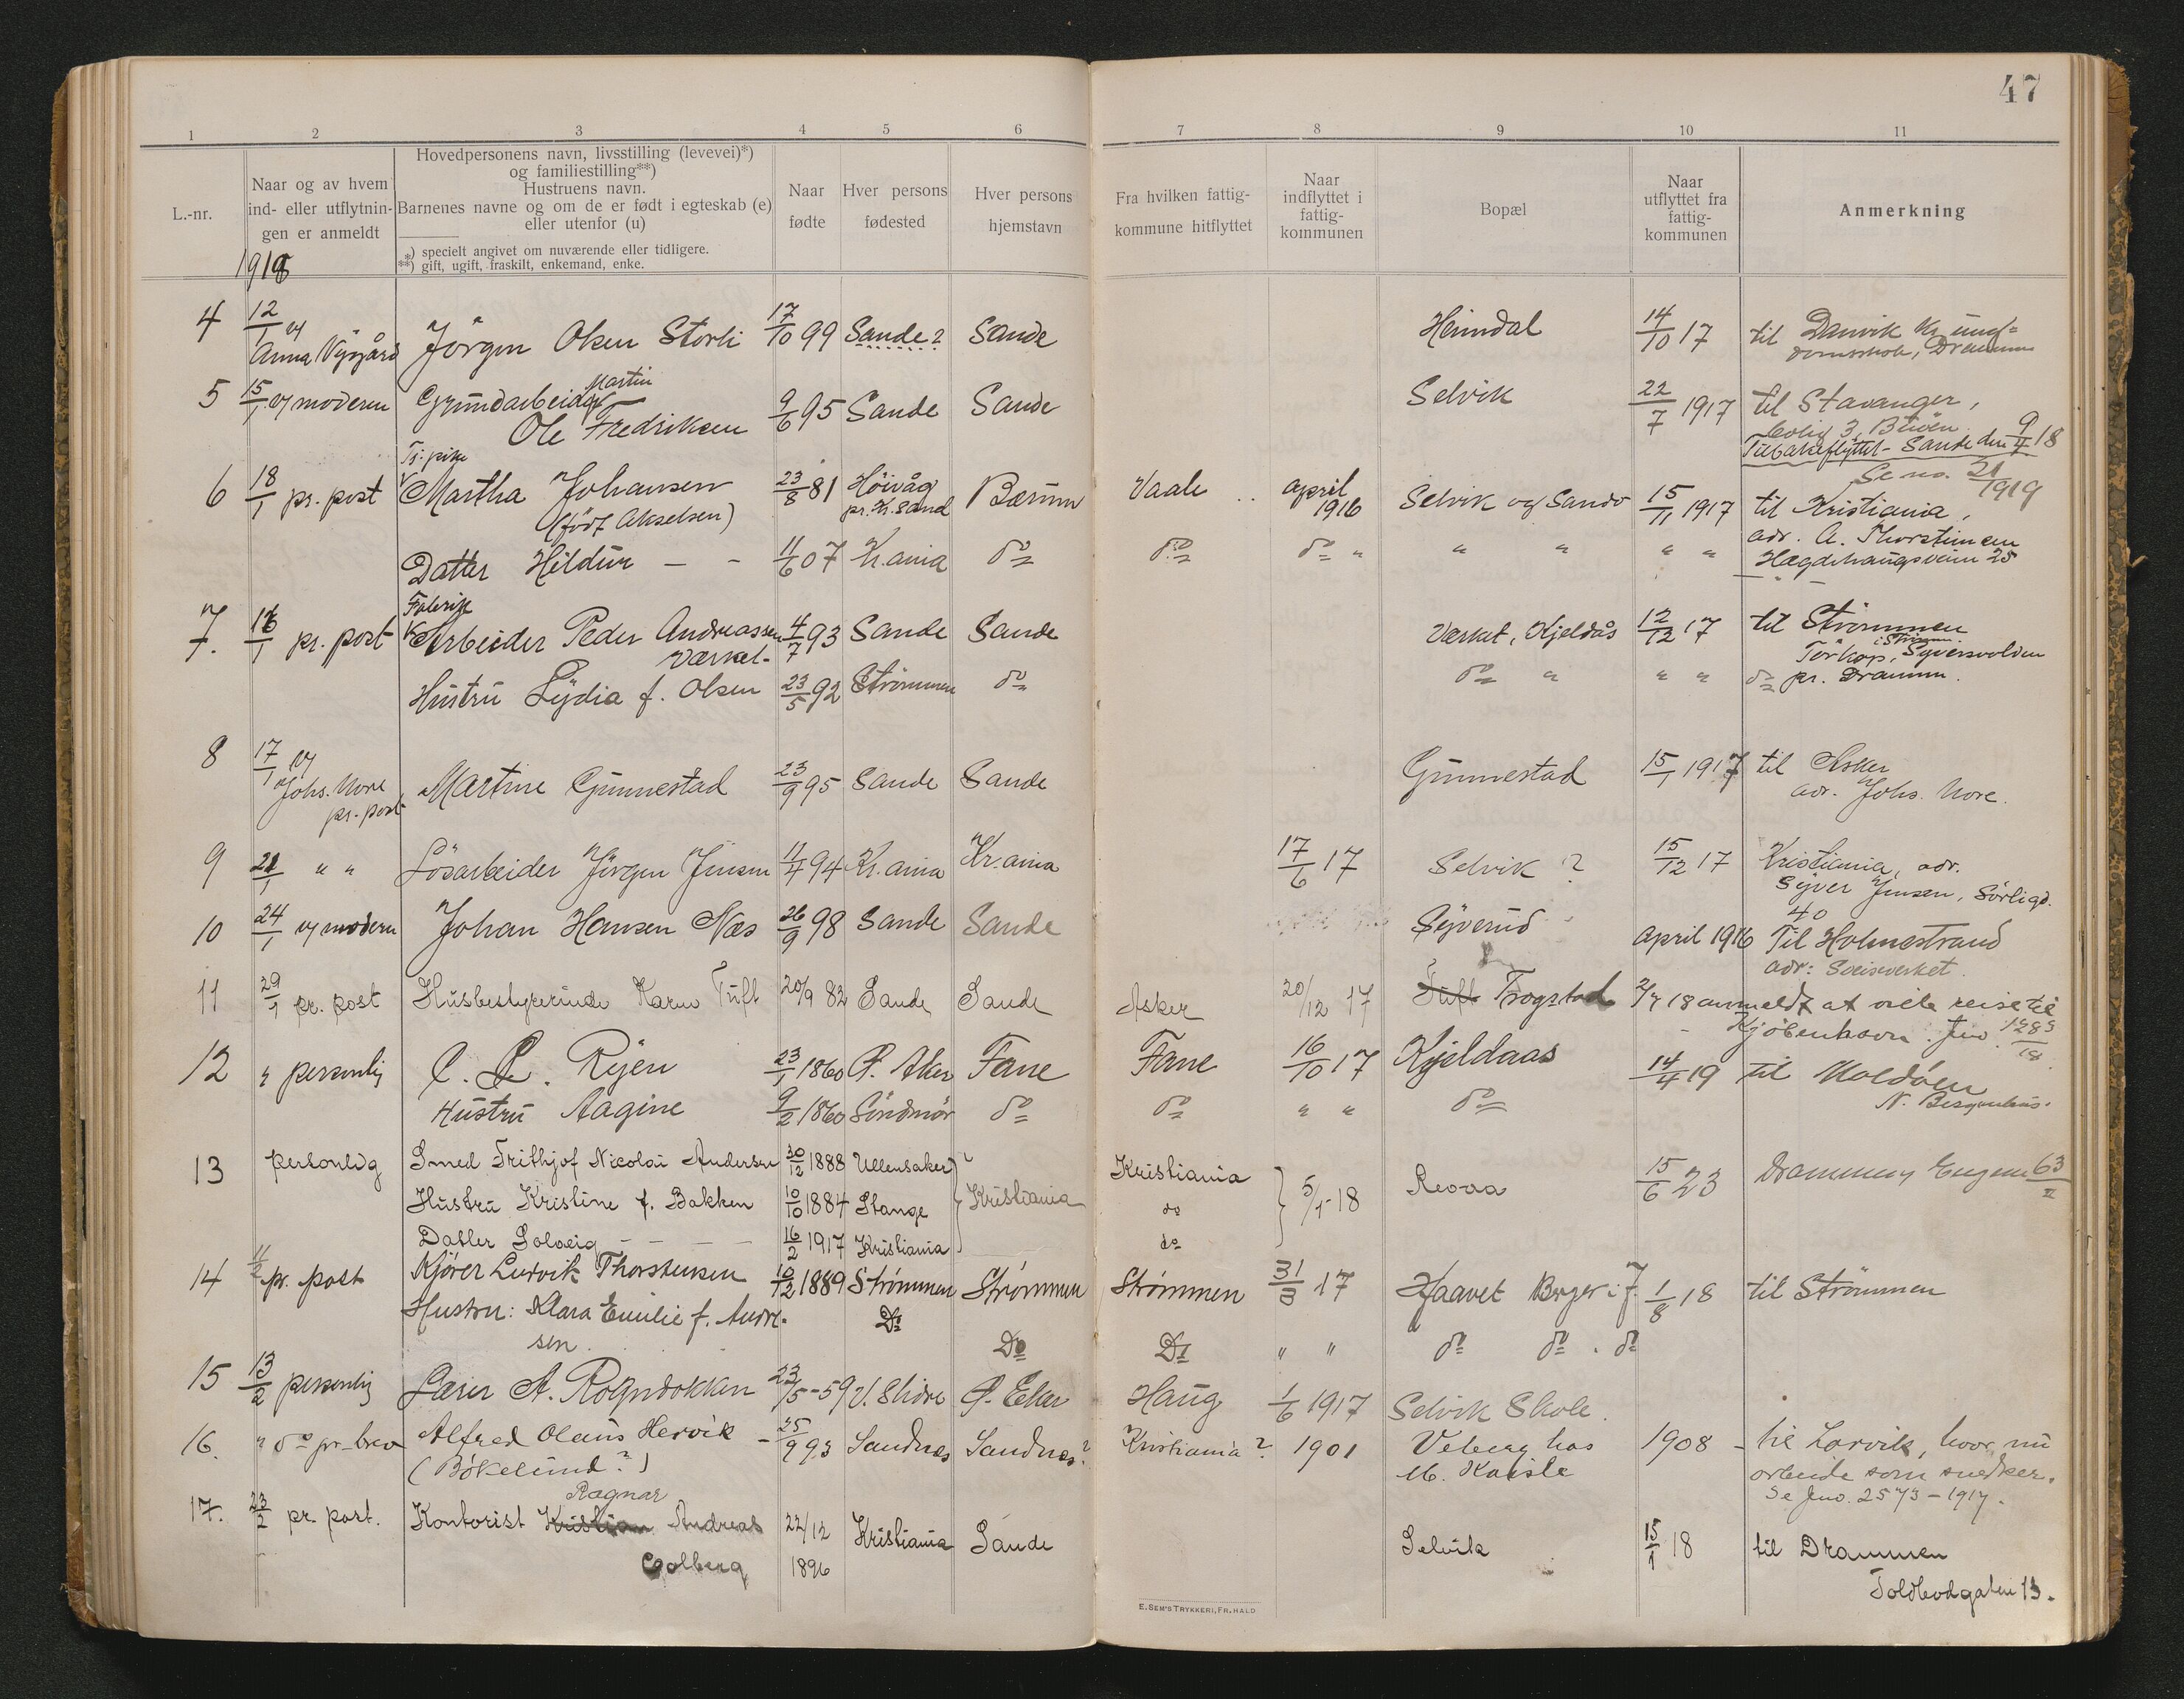 47
1 2 3 4 5 6 7 8 9 10 11
L.-nr.
Naar og av hvem
ind- eller utflytnin-
gen er anmeldt
1918
Hovedpersonens navn, livsstilling (levevei)*)
og familiestilling**)
Hustruens navn.
Barnenes navne og om de er født i egteskab (e)
eller utenfor (u)
*) specielt angivet om nuværende eller tidligere.
**) gift, ugift, fraskilt, enkemand, enke.
Naar
fødte
Hver persons
fødested
Hver persons
hjemstavn
Fra hvilken fattig-
kommune hitflyttet
Naar
indflyttet i
fattig-
kommunen
Bopæl
Naar
utflyttet fra
fattig-
kommunen
Anmerkning
4 12/1 av Jörgen Olsen Storli 17/10 99 Sande? Sande Heimdal 14/10 17 til Danvik Kr. ung=
Anna Nygård domsskole, Drammen
5 15/1 av moderen Grundarbeider Martin 9/6 95 Sande Sande Selvik 22/7 1917 til Stavanger,
Ole Fredriksen bolig 3,
Tilbakeflyttet Sande den 9/4 18
Se no. 21/1919
Tj. pike
6 18/1 pr. post Martha Johansen 23/8 81 Höivåg Bærum Vaale april Selvik og Sande 15/11 1917 til Kristiania,
(født Akselsen) pr. Kr.sand 1916 adr. A. Thorstensen
Datter Hildur — - 11/6 07 Kr.ania do do do " " " " " Hægdehaugsveien 25
Fabrik
7. 16/1 pr. post Arbeider Peder Andreassen 4/7 93 Sande Sande Værket, Kjeldås 12/12 17 til Strömmen
Værket. Törkop, i Strömm. Syversvolden
Hustru Lydia f. Olsen 23/5 92 Strömmen do do " " " do pr. Drammen.
8 17/1 av Martine Gunnestad 23/9 95 Sande Sande Gunnestad 15/1 1917 til Asker
Johs. Nore adr. Johs. Nore.
pr. post
9 21/1 " " Lösarbeider Jörgen Jensen 11/4 94 Kr.ania Kr.ania 17/6 17 Selvik? 15/12 17 Kristiania, adr.
Syver Jensen, Sörligt.
40
10 24/1 av modern Johan Hansen Næs 26/9 98 Sande Sande Syverud April 1916 Til Holmestrand
adr: Sveisverket.
11 29/1 pr. post Husbestyrerinde Karen Tuft 20/9 82 Sande Sande Asker 20/12 17 Tuft Trogstad 2/7 18 anmeldt at ville reise til
Kjöbenhavn. Jno. 1283/18
12 " personlig C. L. Ryen 23/1 1860 Ø. Aker Fane Fane 16/10 17 Kjeldaas 14/4 19 til Maldöen
Hustru Aagine 9/2 1860 Söndmör do do " " do N. Bergenhus.
13 personlig Smed Frithjof Nicolai Andersen 30/12 1888 Ullensaker Kristiania Kristiania 5/1-18 Revaa 15/6 23 Drammen, Engene 63/II
Hustru Kristine f. Bakken 10/10 1884 Stange do
Datter Solveig — — — 16/2 1917 Kristiania do
14 11/2 pr. post Kjører Ludvik Thorstensen 10/12 1889 Strømmen Strømmen Strømmen 31/3 17 Haavet Berger i J. 1/8 18 til Strömmen
Hustru: Klara Emilie f. Andre- Do
sen. Do Do " " do do do
15 13/2 personlig Lærer A. Rogndokken 23/5-59 V. Slidre Ø. Eker Haug 1/6 1917 Selvik Skole.
16. " do pr. brev Alfred Olaus Hervik - 25/9 93 Sandnes Sandnes? Kristiania? 1901 Veberg hos 1908 - til Larvik, hvor nu
(Bökelund?) M. Kaisle arbeide som snedker.
Se Jno. 2573-1917.
Ragnar
17. 23/2 pr. post. Kontorist Kristian Andreas 22/12 Kristiania Sande Selvik 15/1 18 til Drammen
Golberg 1896 Toldbodgaten 13.
E. SEM'S TRYKKERI, FR. HALD